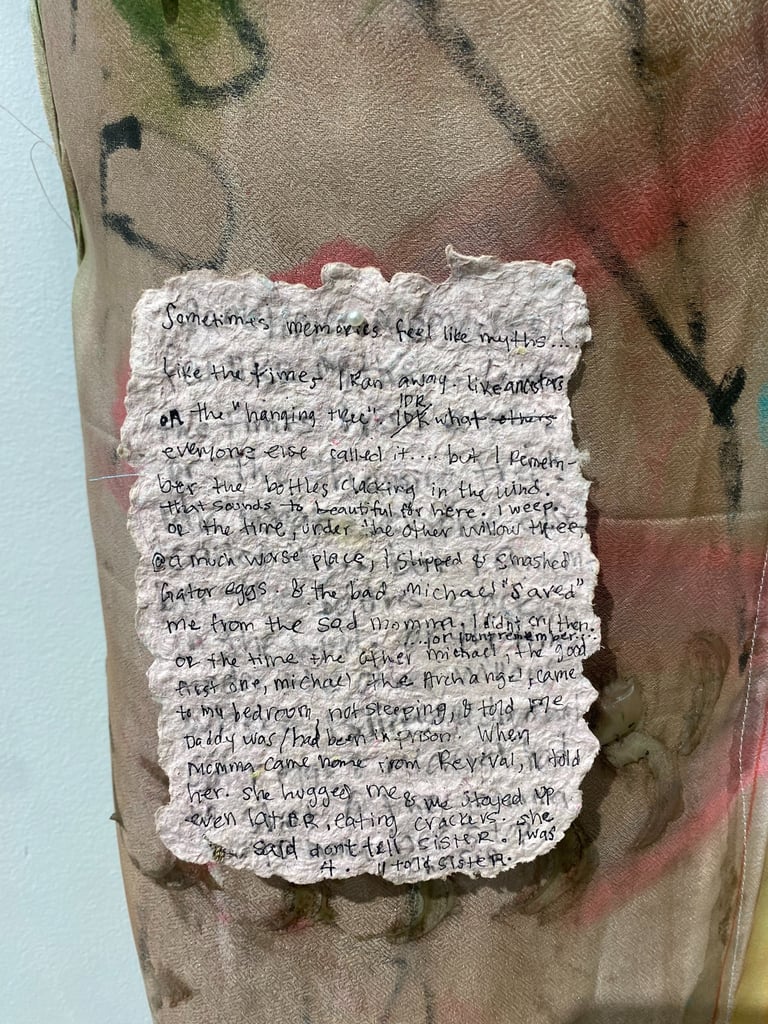 Sometimes memories feel like myths....
Like the times I Ran away. Like ancestors
IDK
on the "hanging tree". IDK what others
everyone else called it.... but I remem-
ber the bottles clacking in the wind.
that sounds to beautiful for here. I weep.
or the time, under the other willow tree,
@ a much worse place, I slipped & smashed
Gator eggs. & the bad Michael "saved"
me from the sad momma. I didn't cry then.
...or I don't remember...
or the time the other michael, the good
first one, michael the Archangel, came
to my bedroom, not sleeping, & told me
Daddy was/had been in prison. When
momma came home from Revival, I told
her. she hugged me & we stayed up
even later, eating crackers. she
said dont tell SISTER. I was
4. I told SISTER.